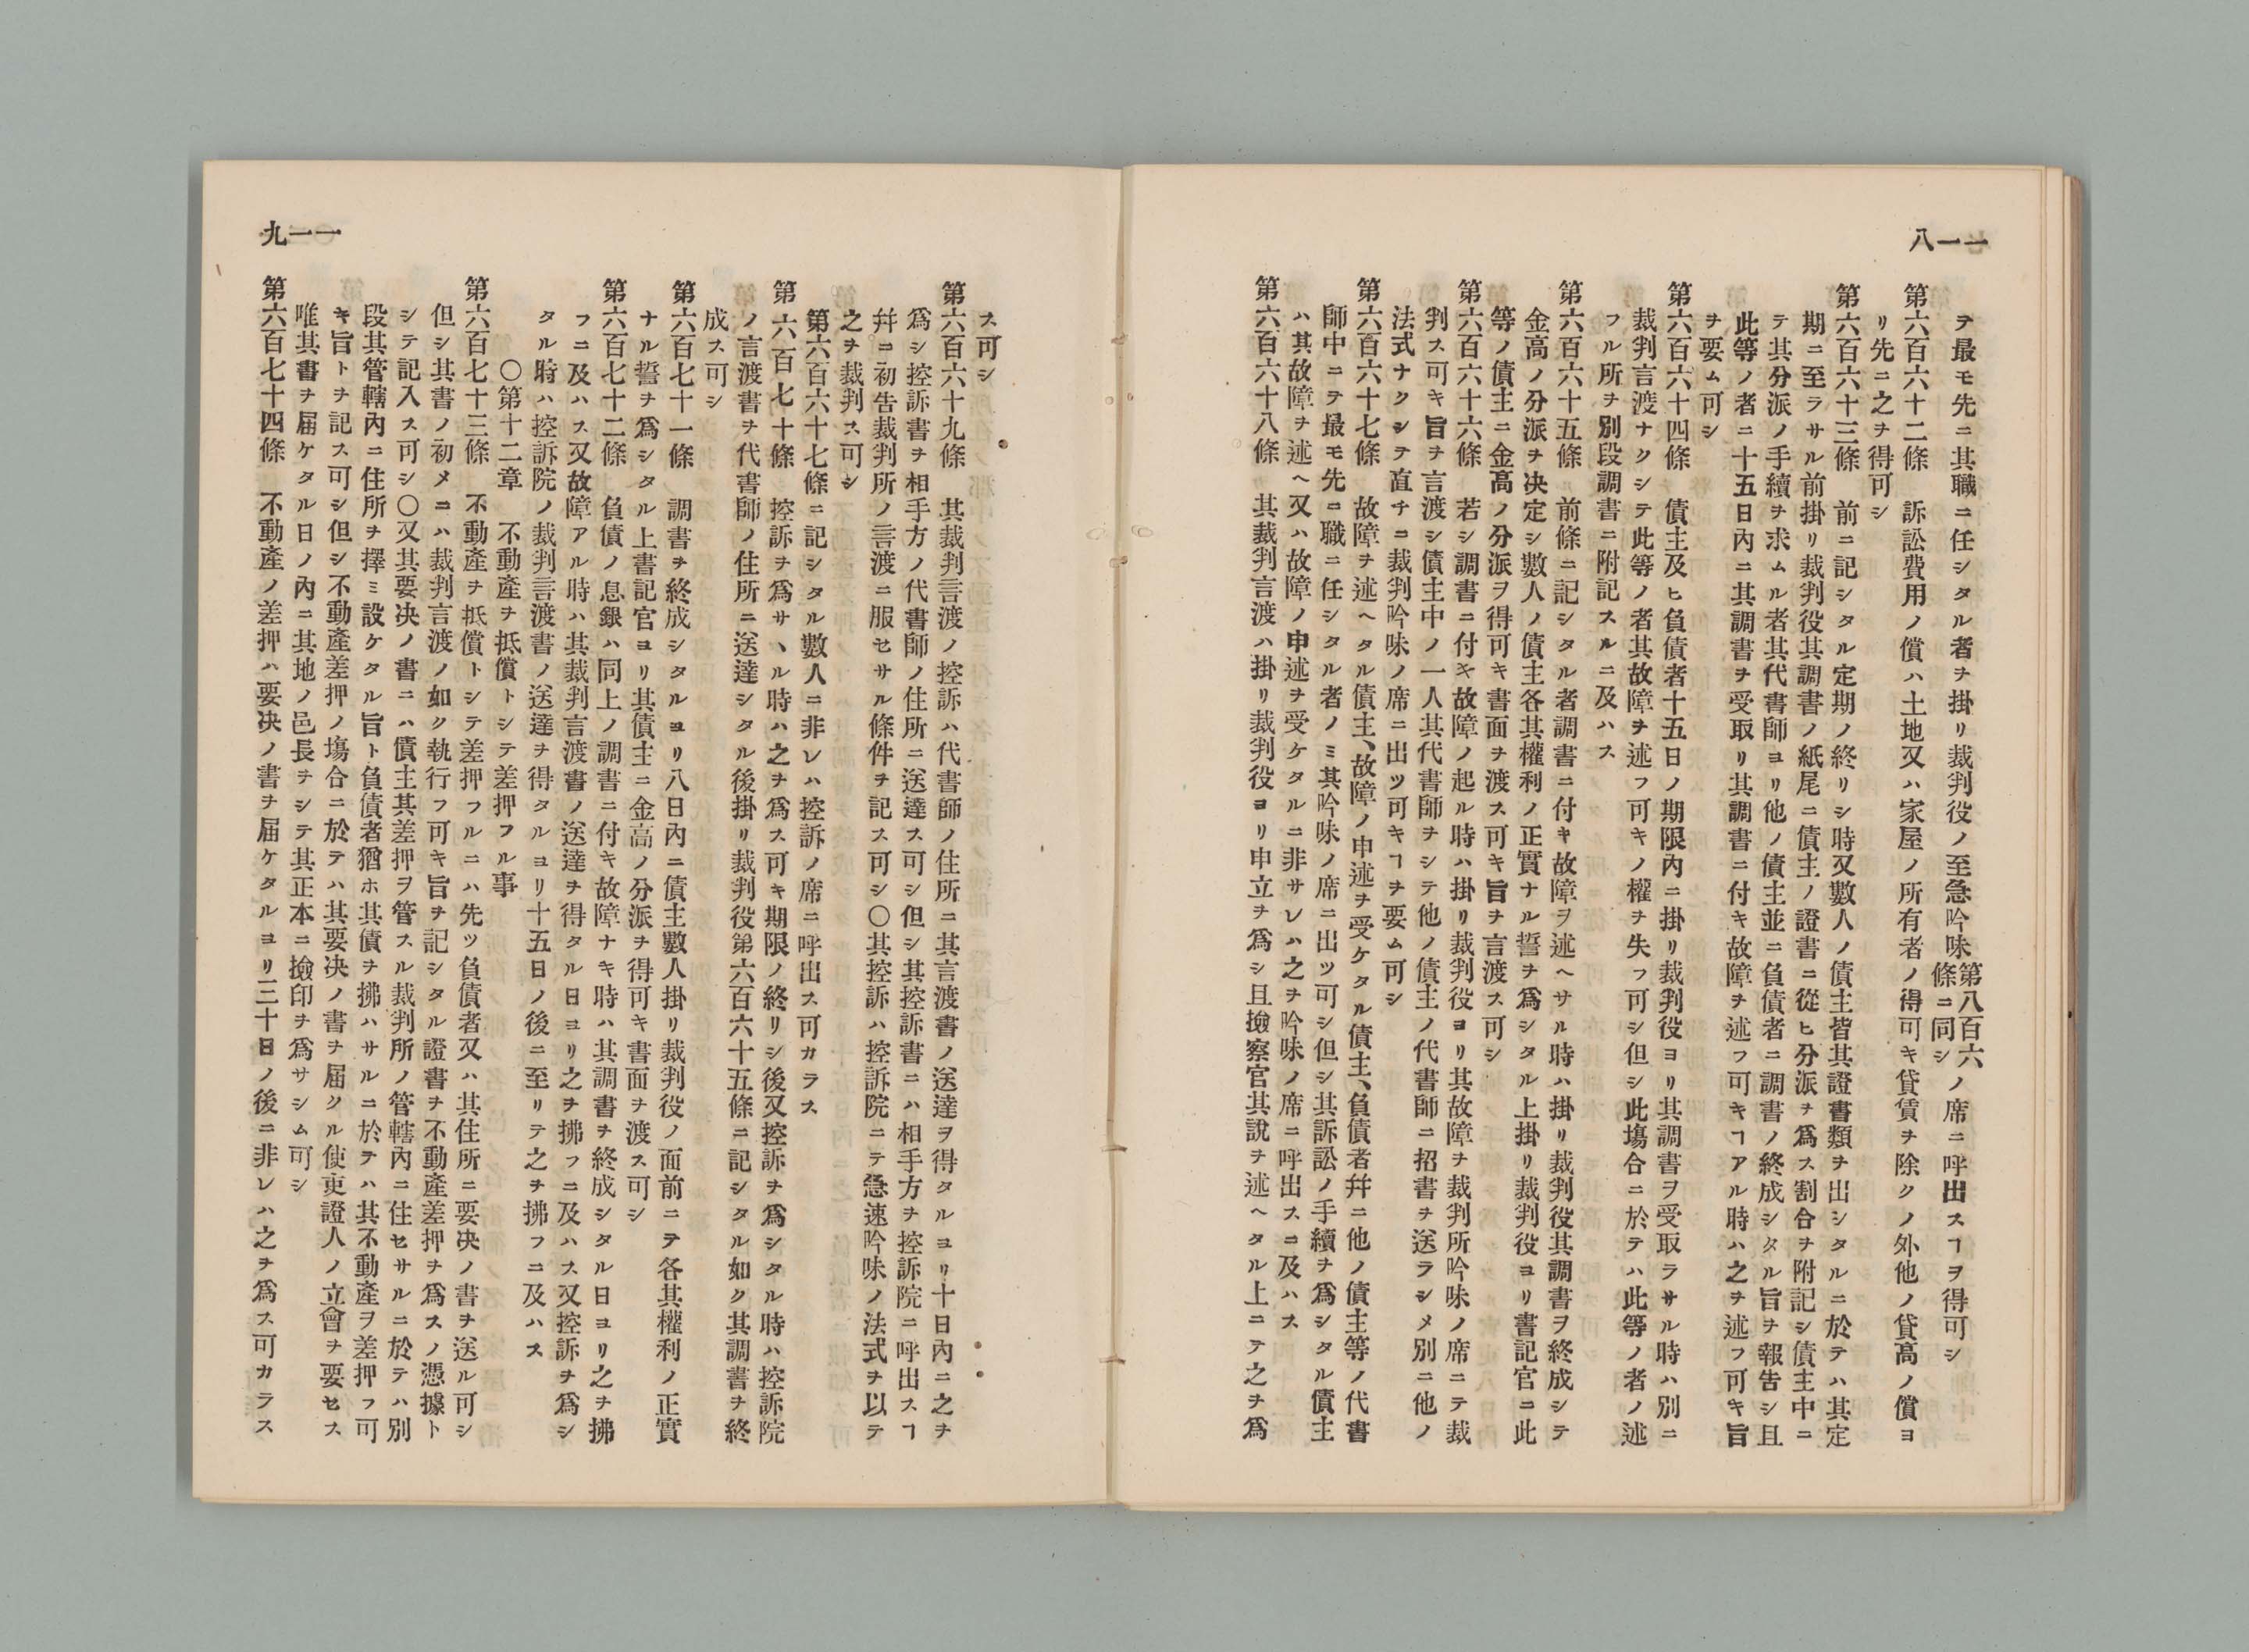 一一八
ヲ最モ先ニ其職ニ任シタル者ヲ掛リ裁判役ノ至急吟味第八百六條ニ同シノ席ニ呼出スヿヲ得可シ
第六百六十二條　訴訟費用ノ償ハ土地又ハ家屋ノ所有者ノ得可キ貸賃ヲ除クノ外他ノ貸高ノ償ヨ
リ先ニ之ヲ得可シ
第六百六十三條　前ニ記シタル定期ノ終リシ時又數人ノ債主皆其證書類ヲ出シタルニ於テハ其定
期ニ至ラサル前掛リ裁判役其調書ノ紙尾ニ債主ノ證書ニ從ヒ分派ヲ爲ス割合ヲ附記シ債主中ニ
テ其分派ノ手續ヲ求ムル者其代書師ヨリ他ノ債主並ニ負債者ニ調書ノ終成シタル旨ヲ報告シ且
此等ノ者ニ十五日內ニ其調書ヲ受取リ其調書ニ付キ故障ヲ述フ可キヿアル時ハ之ヲ述フ可キ旨
ヲ要ム可シ
第六百六十四條　債主及ヒ負債者十五日ノ期限內ニ掛リ裁判役ヨリ其調書ヲ受取ラサル時ハ別ニ
裁判言渡ナクシテ此等ノ者其故障ヲ述フ可キノ權ヲ失フ可シ但シ此塲合ニ於テハ此等ノ者ノ述
フル所ヲ別段調書ニ附記スルニ及ハス
第六百六十五條　前條ニ記シタル者調書ニ付キ故障ヲ述ヘサル時ハ掛リ裁判役其調書ヲ終成シテ
金高ノ分派ヲ决定シ數人ノ債主各其權利ノ正實ナル誓ヲ爲シタル上掛リ裁判役ヨリ書記官ニ此
等ノ債主ニ金高ノ分派ヲ得可キ書面ヲ渡ス可キ旨ヲ言渡ス可シ
第六百六十六條　若シ調書ニ付キ故障ノ起ル時ハ掛リ裁判役ヨリ其故障ヲ裁判所吟味ノ席ニテ裁
判ス可キ旨ヲ言渡シ債主中ノ一人其代書師ヲシテ他ノ債主ノ代書師ニ招書ヲ送ラシメ別ニ他ノ
法式ナクシテ直チニ裁判吟味ノ席ニ出ツ可キヿヲ要ム可シ
第六百六十七條　故障ヲ述ヘタル債主、故障ノ申述ヲ受ケタル債主、負債者幷ニ他ノ債主等ノ代書
師中ニテ最モ先ニ職ニ任シタル者ノミ其吟味ノ席ニ出ツ可シ但シ其訴訟ノ手續ヲ爲シタル債主
ハ其故障ヲ述ヘ又ハ故障ノ申述ヲ受ケタルニ非サレハ之ヲ吟味ノ席ニ呼出スニ及ハス
第六百六十八條　其裁判言渡ハ掛リ裁判役ヨリ申立ヲ爲シ且撿察官其說ヲ述ヘタル上ニテ之ヲ爲
一一九
ス可シ
第六百六十九條　其裁判言渡ノ控訴ハ代書師ノ住所ニ其言渡書ノ送達ヲ得タルヨリ十日內ニ之ヲ
爲シ控訴書ヲ相手方ノ代書師ノ住所ニ送達ス可シ但シ其控訴書ニハ相手方ヲ控訴院ニ呼出スヿ
幷ニ初吿裁判所ノ言渡ニ服セサル條件ヲ記ス可シ〇其控訴ハ控訴院ニテ急速吟味ノ法式ヲ以テ
之ヲ裁判ス可シ
第六百六十七條ニ記シタル數人ニ非レハ控訴ノ席ニ呼出ス可カラス
第六百七十條　控訴ヲ爲サヽル時ハ之ヲ爲ス可キ期限ノ終リシ後又控訴ヲ爲シタル時ハ控訴院
ノ言渡書ヲ代書師ノ住所ニ送達シタル後掛リ裁判役第六百六十五條ニ記シタル如ク其調書ヲ終
成ス可シ
第六百七十一條　調書ヲ終成シタルヨリ八日內ニ債主數人掛リ裁判役ノ面前ニテ各其權利ノ正實
ナル誓ヲ爲シタル上書記官ヨリ其債主ニ金高ノ分派ヲ得可キ書面ヲ渡ス可シ
第六百七十二條　負債ノ息銀ハ同上ノ調書ニ付キ故障ナキ時ハ其調書ヲ終成シタル日ヨリ之ヲ拂
フニ及ハス又故障アル時ハ其裁判言渡書ノ送達ヲ得タル日ヨリ之ヲ拂フニ及ハス又控訴ヲ爲シ
タル時ハ控訴院ノ裁判言渡書ノ送達ヲ得タルヨリ十五日ノ後ニ至リテ之ヲ拂フニ及ハス
〇第十二章　不動產ヲ抵償トシテ差押フル事
第六百七十三條　不動產ヲ抵償トシテ差押フルニハ先ツ負債者又ハ其住所ニ要决ノ書ヲ送ル可シ
但シ其書ノ初メニハ裁判言渡ノ如ク執行フ可キ旨ヲ記シタル證書ヲ不動產差押ヲ爲スノ憑據ト
シテ記入ス可シ〇又其要决ノ書ニハ債主其差押ヲ管スル裁判所ノ管轄內ニ住セサルニ於テハ別
段其管轄內ニ住所ヲ擇ミ設ケタル旨ト負債者猶ホ其債ヲ拂ハサルニ於テハ其不動產ヲ差押フ可
キ旨トヲ記ス可シ但シ不動產差押ノ塲合ニ於テハ其要决ノ書ヲ屆クル使吏證人ノ立會ヲ要セス
唯其書ヲ屆ケタル日ノ內ニ其地ノ邑長ヲシテ其正本ニ撿印ヲ爲サシム可シ
第六百七十四條　不動產ノ差押ハ要决ノ書ヲ屆ケタルヨリ三十日ノ後ニ非レハ之ヲ爲ス可カラス